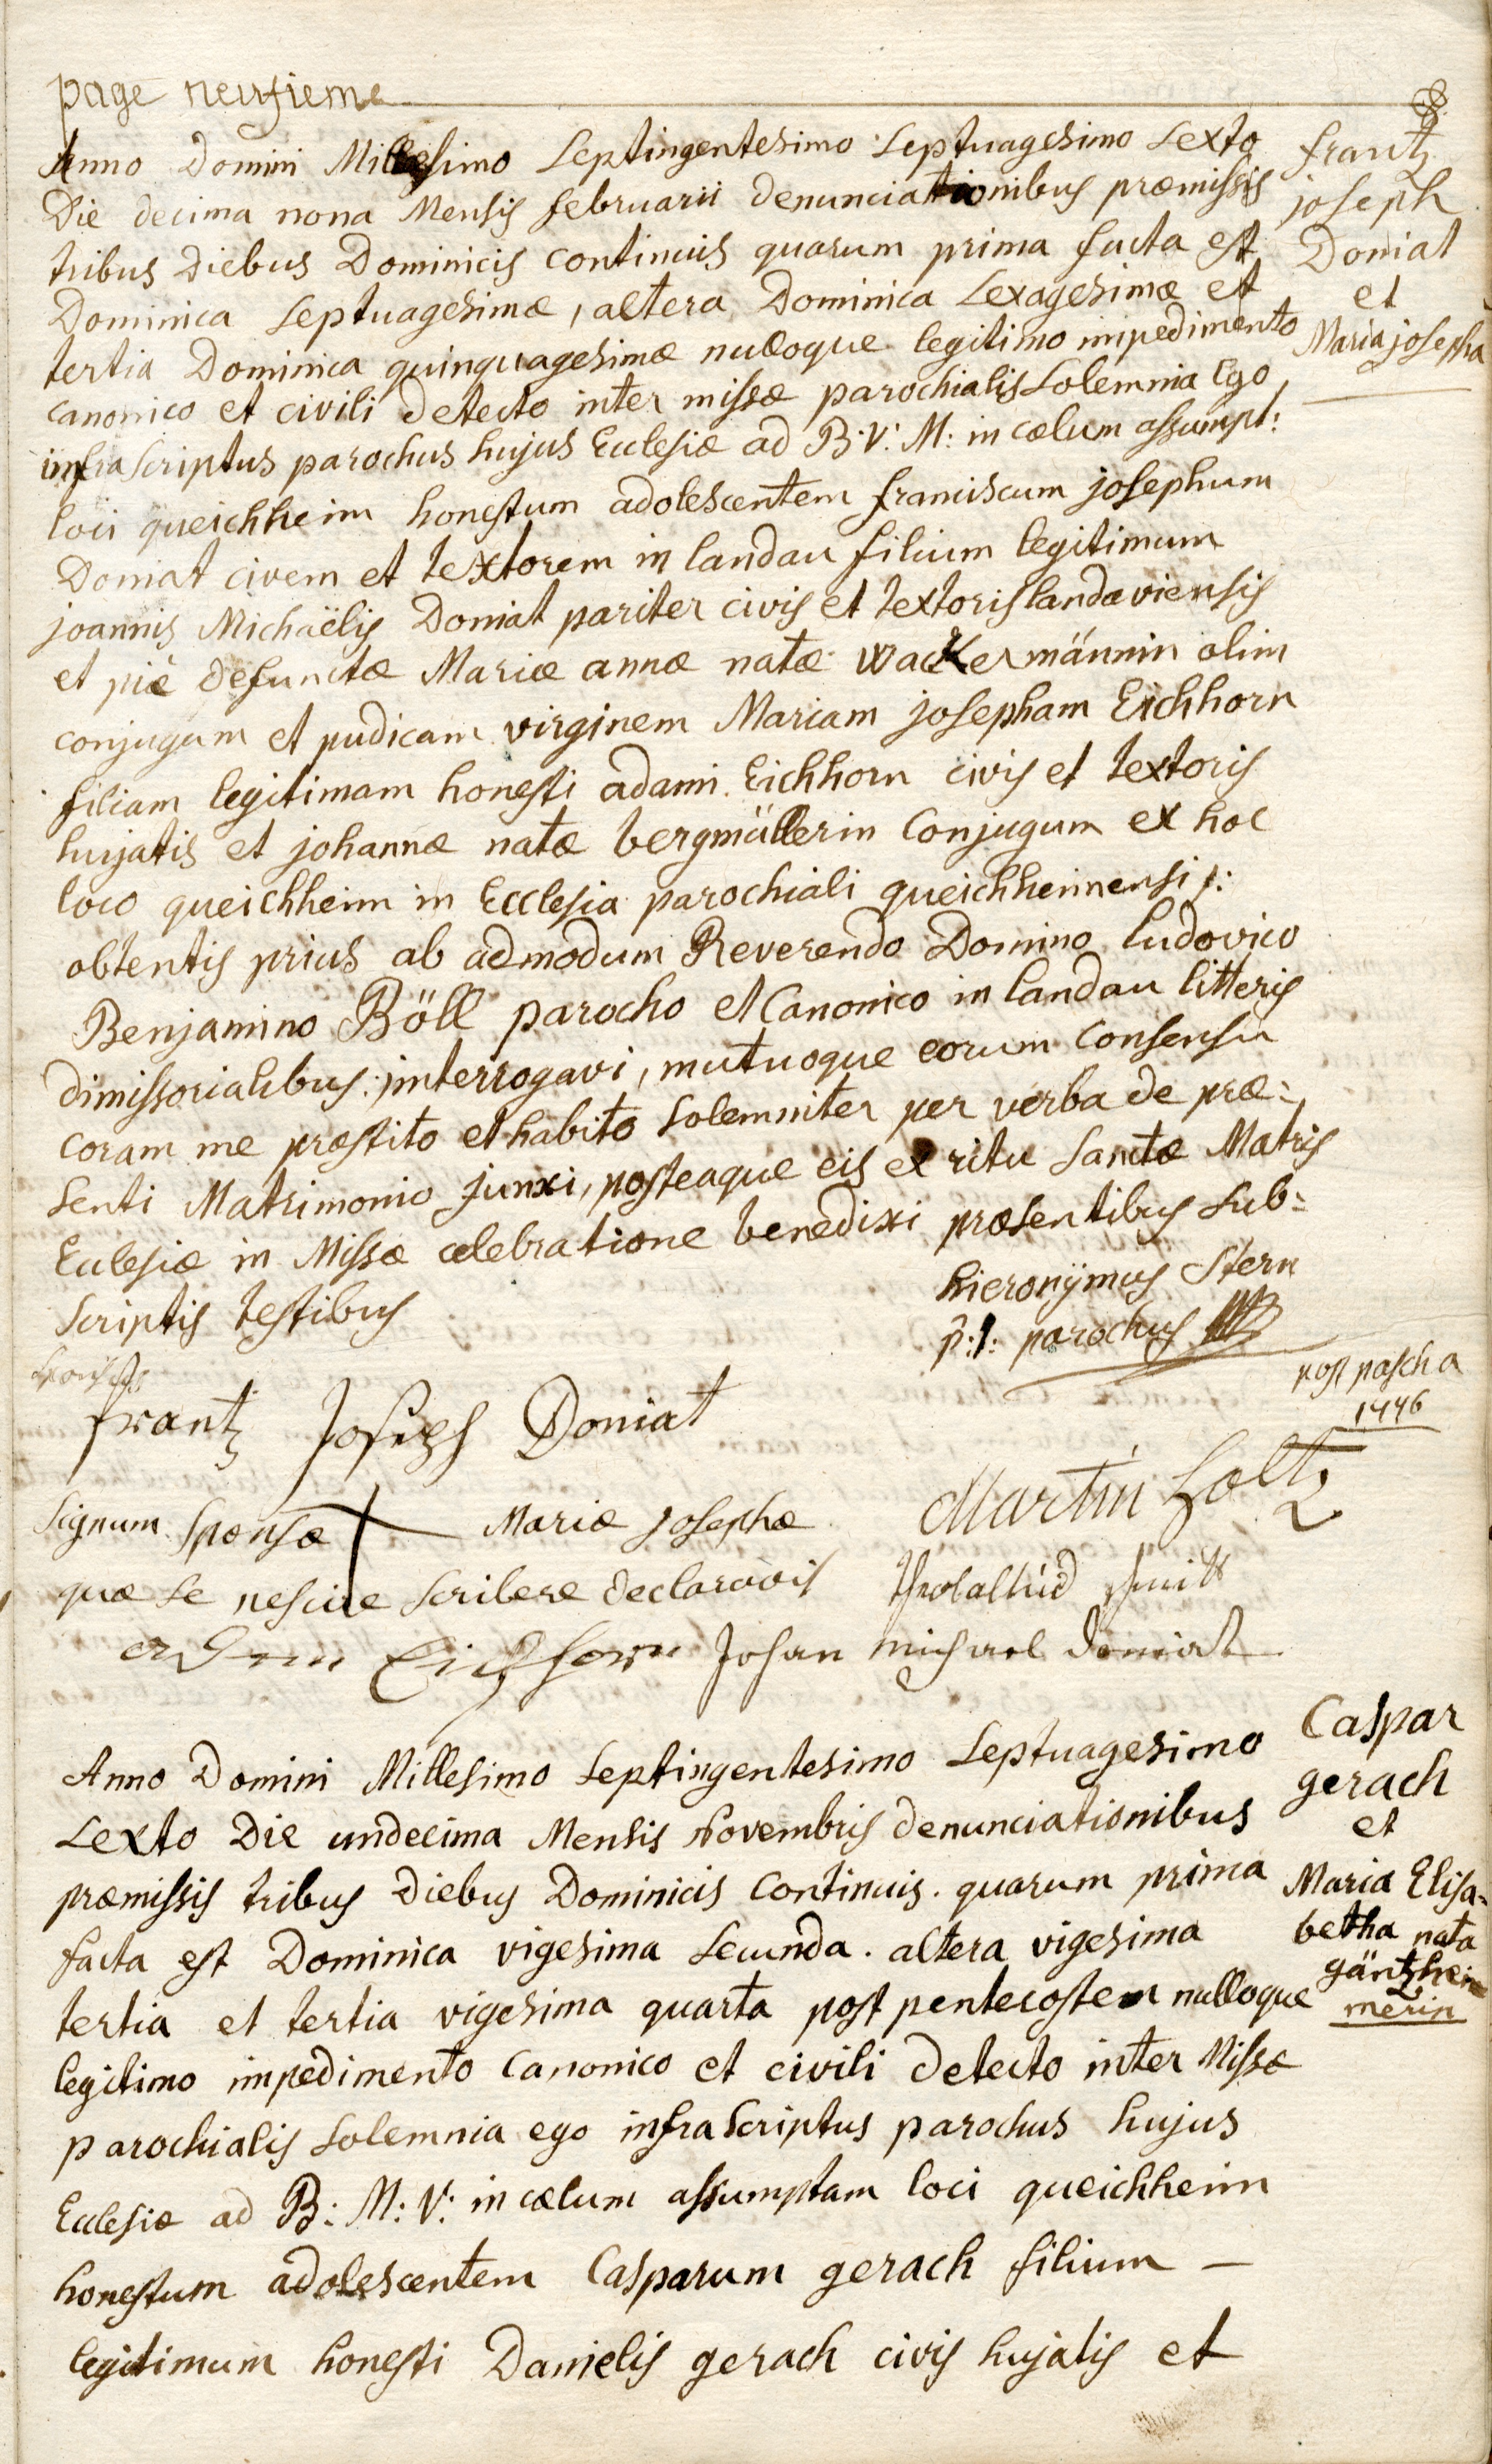 page neufieme
Anno Domini Millesimo Septingentesimo Septuagesimo Sexto
Die decima nona Mensis februarii denunciationibus præmissis
tribus Diebus Dominicis continuis quarum prima facta est
Dominica Septuagesimæ, altera Dominica Sexagesimæ et
tertia Dominica quinquagesimæ nulloque legitimo impedimento
canonico et civili detecto inter missæ parochialis Solemnia Ego
infra Scriptus parochus hujus Ecclesiæ ad B: V: M: in cœlum assumpt:
loci queichheim honestum adolescentem franciscum josephum
Doniat civem et textorem in landau filium legitimum
joannis Michaëlis Doniat pariter civis et textoris landaviensis
et piè defunctæ Mariæ annæ natæ wackermännin olim
conjugum et pudicam virginem Mariam josepham Eichhorn
filiam legitimam honesti adami Eichhorn civis et textoris
hujatis et johannæ natæ bergmüllerin Conjugum ex hoc
loco queichheim in Ecclesia parochiali queichheimensi /:
obtentis prius ab admodum Reverendo Domino ludovico
Benjamino Böll parocho et Canonico in landau litteris
dimissorialibus :/ interrogavi, mutuoque eorum consensu
coram me præstito et habito Solemniter per verba de præ:
senti Matrimonio junxi, posteaque eis ex ritu Sanctæ Matris
Ecclesiæ in Missæ celebratione benedixi præsentibus Sub:
Scriptis testibus
hieronÿmus Stern
p: t: parochus
frantz Joseph Doniat
Signum Sponsæ Mariæ Josephæ
quæ se nescire scribere declaravit
Martin
Adam Eichhorn Johan michael doniat
frantz
joseph
Doniat
et
Maria josepha
post pascha
1776
Anno Domini Millesimo Septingentesimo Septuagesimo
Sexto Die undecima Mensis Novembris denunciationibus
præmissis tribus diebus Dominicis Continuis. quarum prima
facta est Dominica vigesima Secunda. altera vigesima
tertia et tertia vigesima quarta post pentecostem nulloque
legitimo impedimento Canonico et civili detecto inter Missæ
parochialis Solemnia ego infra Scriptus parochus hujus
Ecclesiæ ad B: M: V: in cælum assumptam loci queichheim
honestum adolescentem Casparum gerach filium —
legitimum honesti Danielis gerach civis hujatis et
Caspar
gerach
et
Maria Elisa-
betha nata
gäntzhei=
merin